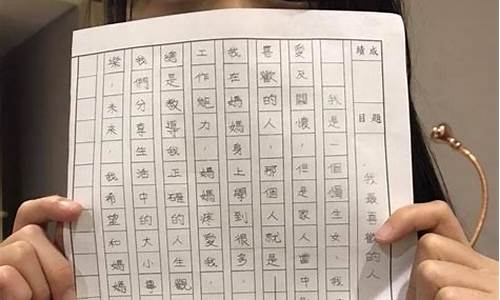 成績
題目
我最喜歡的人
我是一個獨生女，我
愛及關懷，但是家人當中
喜歡的人，那個人就是—
我在媽媽身上學到很多
工作能力，媽媽疼愛我，
總是教導我正確的人生觀
我們分享生活中的大小事
樂，未來，我希望和媽媽